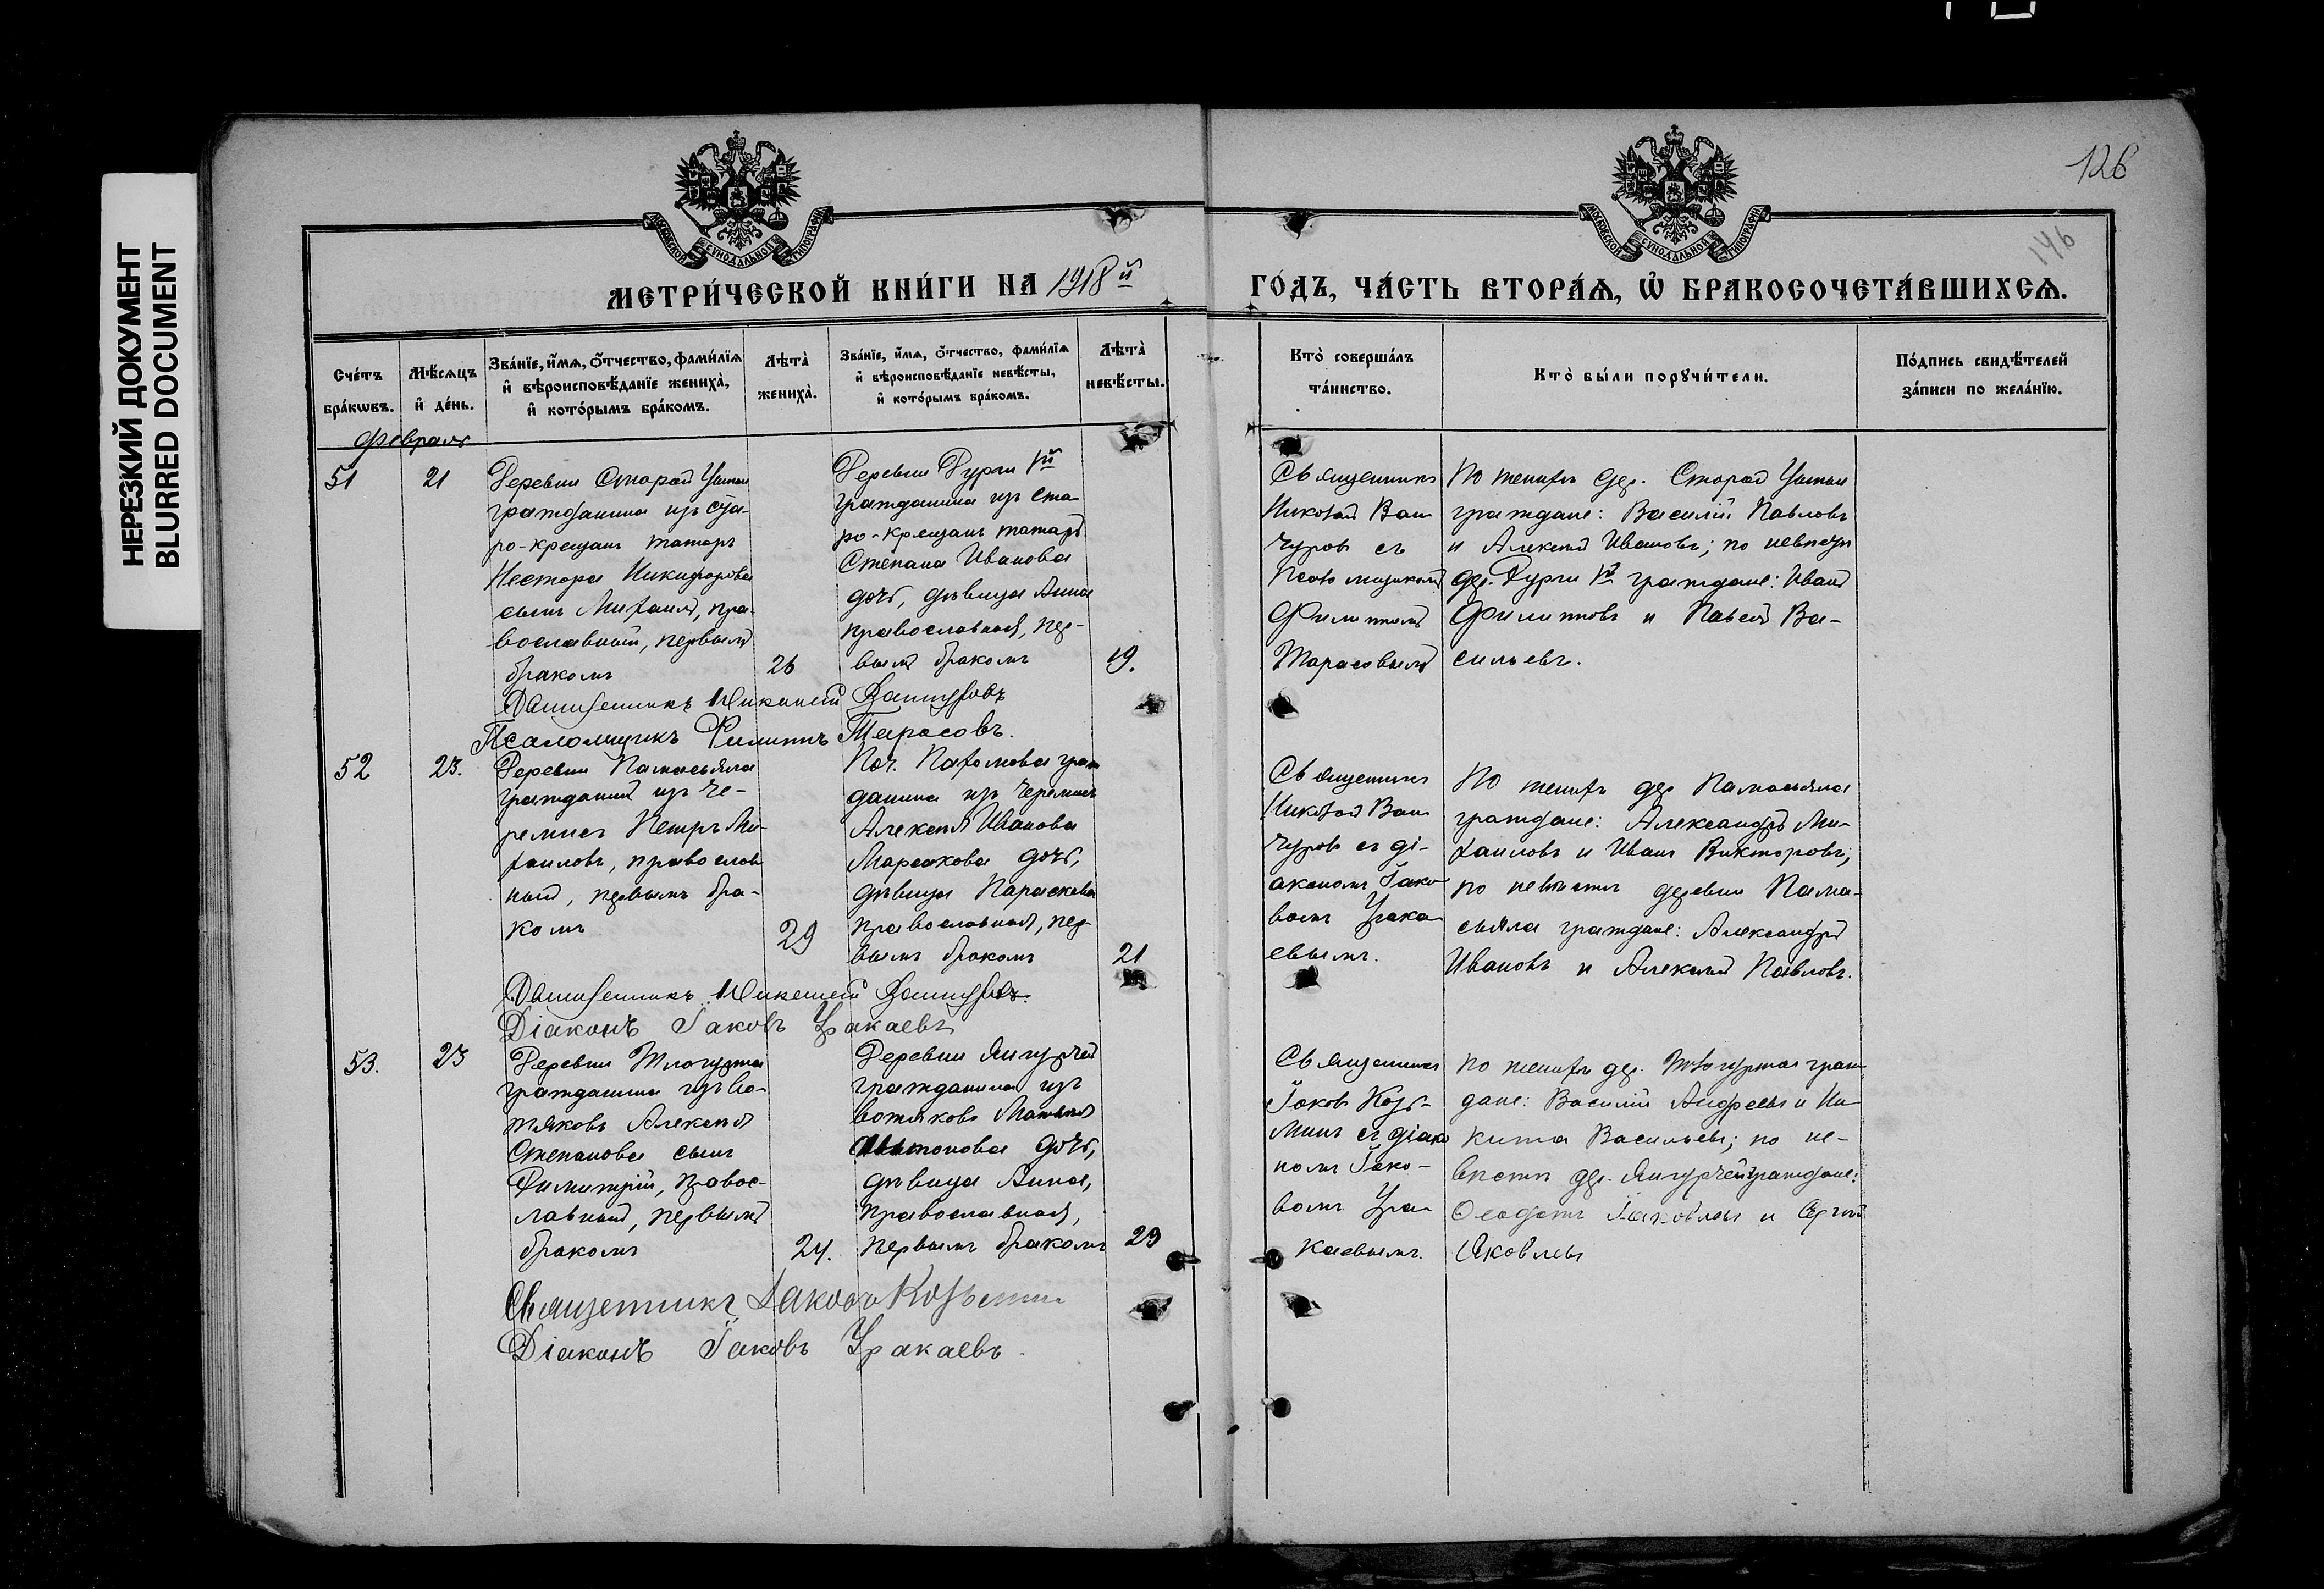 НЕРЕЗКИЙ ДОКУМЕНТ
BLURRED DOCUMENT
126
146
МОСКОВСКОЙ СѴНОДАЛЬНОЙ ТИПОГРАФІИ
МОСКОВСКОЙ СѴНОДАЛЬНОЙ ТИПОГРАФІИ
МЕТРИ́ЧЕСКОЙ КНИ́ГИ НА 1918й
ГО́ДЪ, ЧА́СТЬ ВТОРА́Ѧ, Ѡ҆ БРАКОСОЧЕТА́ВШИХСѦ.
Сче́тъ
бра́кѡвъ.
Мѣ́сѧцъ
и҆ де́нь.
Зва́нїе, и҆́мѧ, ѻ҆́тчество, фами́лїѧ
и҆ вѣроисповѣ́данїе жениха̀,
и҆ кото́рымъ бра́комъ.
Лѣта̀
жениха̀.
Зва́нїе, и҆́мѧ, ѻ҆́тчество, фами́лїѧ
и҆ вѣроисповѣ́данїе невѣ́сты,
и҆ кото́рымъ бра́комъ.
Лѣта̀
невѣ́сты.
Кто̀ соверша́лъ
та́инство.
Кто̀ бы́ли порꙋчи́тели.
По́дпись свидѣ́телей
за́писи по жела́нїю.
Февраль
51
21
Деревни Старой
гражданина изъ ста-
ро-крещен татаръ
Нестора Никифорова
сынъ Михаилъ, пра-
вославный, первымъ
бракомъ
26
Деревни I-й
гражданина изъ ста
ро-крещен татаръ
Степана Иванова
дочь, дѣвица Анна
православная, пер-
вымъ бракомъ
19.
Священникъ
Николай Ваш
туровъ съ
псаломщикомъ
Филиппомъ
Тарасовымъ
По женихѣ дер. Старой
граждане: Василій Павловъ
и Алексѣй Ивановъ; по невѣстѣ
дер. I-й граждане: Иванъ
Филипповъ и Павелъ Ва-
сильевъ.
Священникъ Николай
Псаломщикъ Филиппъ Тарасовъ.
52
23.
Деревни Памасьяла
гражданинъ изъ че-
ремисъ Петръ Ми-
хаиловъ, православ
ный, первымъ бра-
комъ
29
Поч. Пахомова граж
данина изъ черемисъ
Алексѣя Иванова
дочь,
дѣвица Параскева
православная, пер-
вымъ бракомъ
21
Священникъ
Николай
съ ді-
акономъ Іако
вомъ Урака
евымъ.
По женихѣ дер Памасьяла
граждане: Александръ Ми-
хаиловъ и Иванъ Викторовъ;
по невѣстѣ деревни Пама-
сьяла граждане: Александръ
Ивановъ и Алексѣй Павловъ.
Священникъ Николай
Діаконъ Іаковъ Уракаевъ
53.
23
Деревни
гражданина изъ во-
тяковъ Алексѣя
Степанова сынъ
Димитрій, правос-
лавный, первымъ
бракомъ
24.
Деревни
гражданина изъ
вотяковъ Матвѣя
Антонова дочь,
дѣвица Анна,
православная,
первымъ бракомъ
29
Священникъ
Іаковъ Козь-
минъ съ діако
номъ Іако-
вомъ Ура-
каевымъ.
по женихѣ дер. граж
дане: Василій Андреевъ и Ни
кита Васильевъ; по не-
вѣстѣ дер. граждане:
Ѳеодотъ Яковлевъ и Сергѣй
Яковлевъ
Священникъ Іаковъ Козьминъ
Діаконъ Іаковъ Уракаевъ